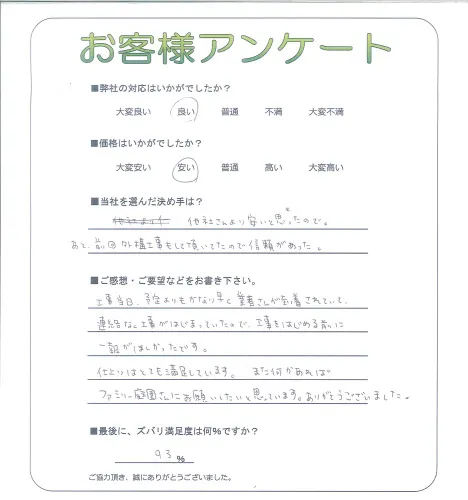 お客様アンケート
■弊社の対応はいかがでしたか？
大変良い 良い 普通 不満 大変不満
■価格はいかがでしたか？
大変安い 安い 普通 高い 大変高い
■当社を選んだ決め手は？
他社より 他社さんより安いと思ったので。
あと、前回外構工事もして頂いてたので信頼があった。
■ご感想・ご要望などをお書き下さい。
工事当日、予定よりもかなり早く業者さんが到着されていて、
連絡なく工事がはじまっていたので、工事をはじめる前に
一報がほしかったです。
仕上りはとても満足しています。 また何かあれば
ファミリー庭園さんにお願いしたいと思っています。ありがとうございました。
■最後に、ズバリ満足度は何％ですか？
93 ％
ご協力頂き、誠にありがとうございました。